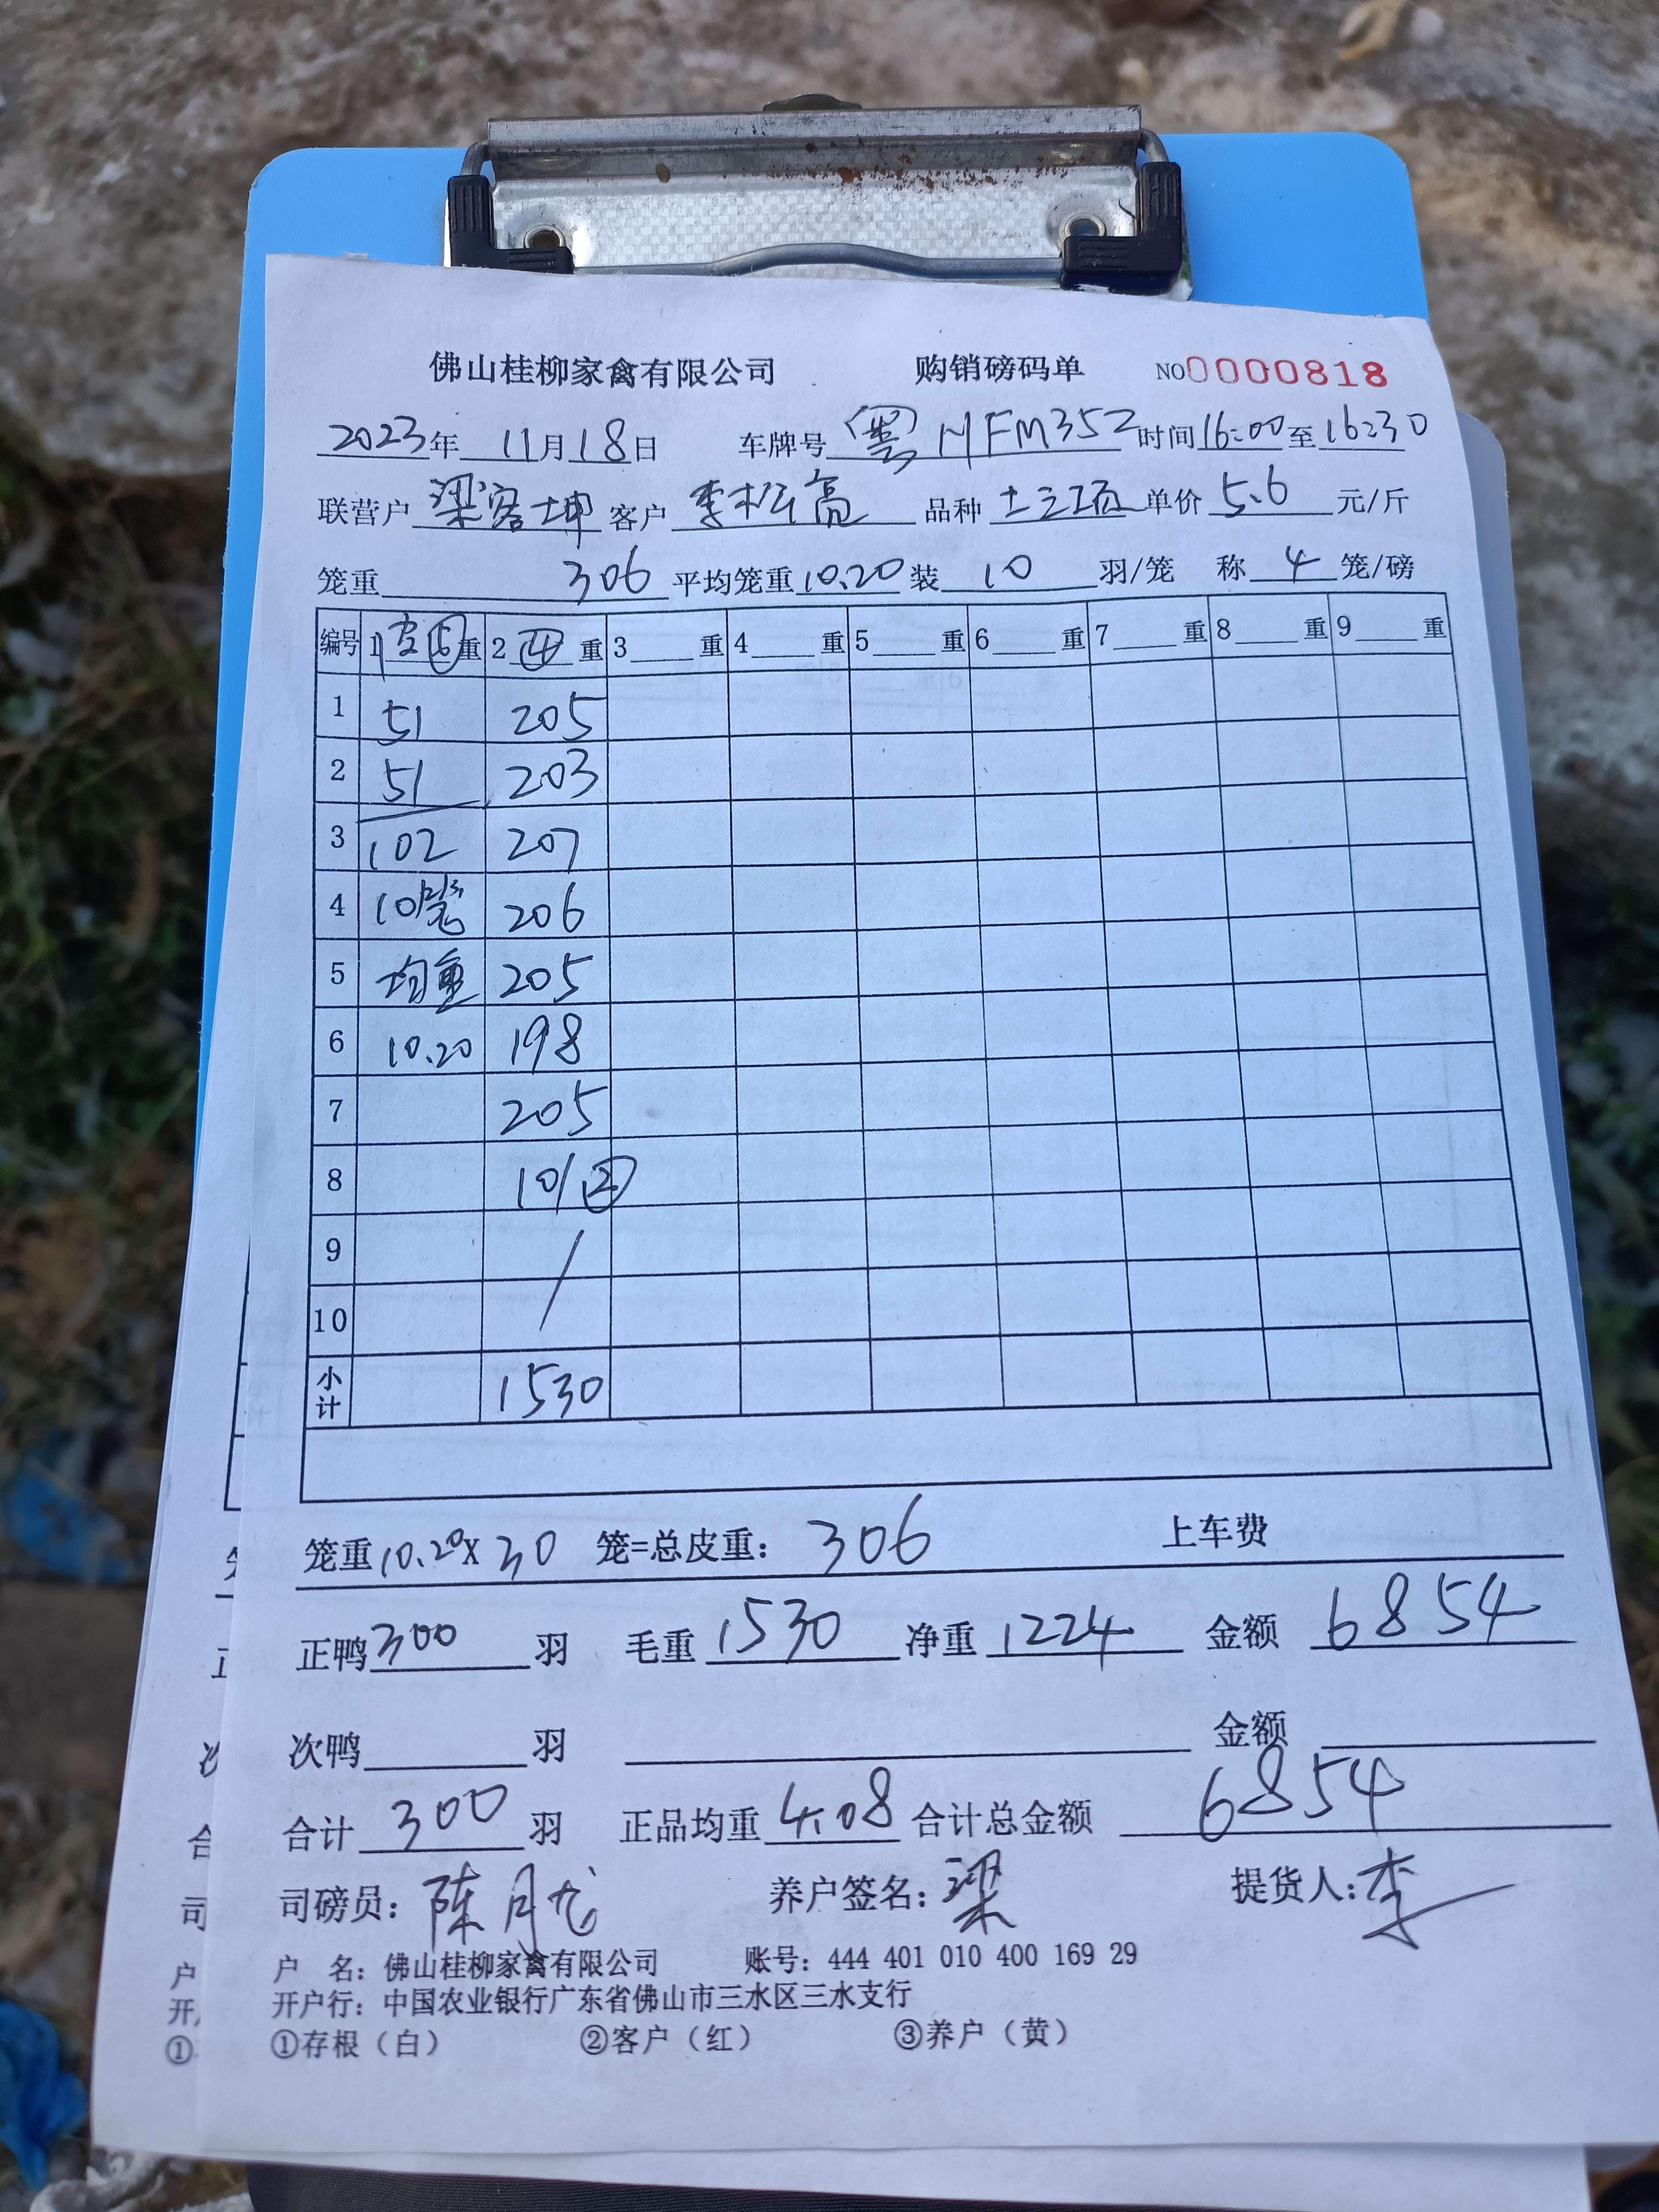 佛山桂柳家禽有限公司 购销磅码单 NO0000818
2023年 11月18日 车牌号 (粤)HFM352 时间16:00至16:30
联营户 梁容坤 客户 李松高 品种 单价 5.6 元/斤
笼重 306 平均笼重10.20装 10 羽/笼 称 4 笼/磅
编号 1皮⑤重 2④重 3 重 4 重 5 重 6 重 7 重 8 重 9 重
1 51 205
2 51 203
3 102 207
4 10笼 206
5 均重 205
6 10.20 198
7 205
8 101②
9 /
10
小计 1530
笼重10.20X 30 笼=总皮重: 306 上车费
正鸭300羽 毛重 1530 净重 1224 金额 6854
次鸭 羽 金额
合计 300 羽 正品均重 4.08 合计总金额 6854
司磅员: 陈月龙 养户签名: 梁 提货人: 李
户 名: 佛山桂柳家禽有限公司 账号: 444 401 010 400 169 29
开户行: 中国农业银行广东省佛山市三水区三水支行
①存根（白） ②客户（红） ③养户（黄）